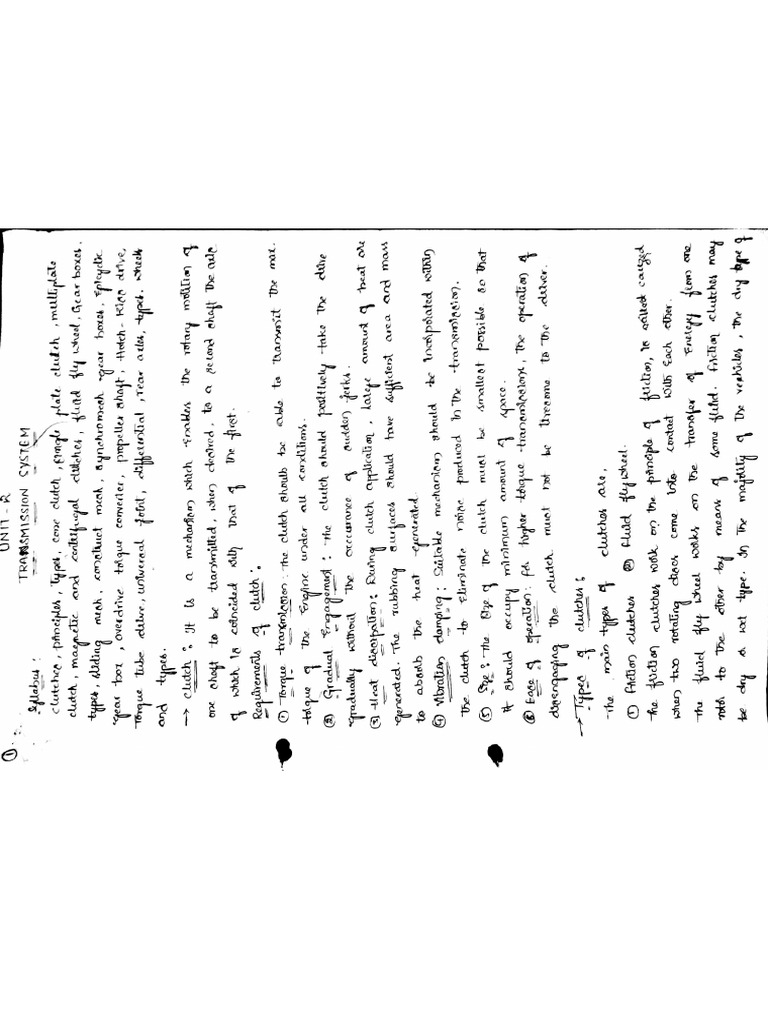 ①
UNIT-2
TRANSMISSION SYSTEM
Syllabus :
clutches, principles, Types, cone clutch, single plate clutch, multiplate
clutch, magnetic and centrifugal clutches, fluid fly wheel, Gear boxes.
types, sliding mesh, construct mesh, synchromesh gear boxes, Epicyclic
gear box, overdrive torque converter, propeller shaft, Hotch-Kiss drive,
Torque tube drive, universal joint, differential, rear axles, types. wheels
and types.
→ clutch : It is a mechanism which Enables the rotary motition of
one shaft to be transmitted, when desired, to a second shaft the axis
of which is coincided with that of the first.
Requirements of clutch :
① Torque transmission : The clutch should be able to transmit the max.
torque of the Engine under all conditions.
② Gradual Engagement : The clutch should positively take the drive
gradually without the occurance of sudden jerks.
③ Heat dissipation : During clutch application, large amount of heat are
generated. The rubbing surfaces should have sufficient area and mass
to absorb the heat generated.
④ Vibration damping : Suitable mechanism should be incorpolated within
the clutch to Eliminate noise produced in the transmission.
⑤ Size : The size of the clutch must be smallest possible so that
it should occupy minimum amount of space.
⑥ Ease of operation : for higher torque transmissions, the operation of
disengaging the clutch must not be tiresome to the driver.
→ Types of clutches :
The main types of clutches are,
① friction clutches ② fluid flywheel.
The friction clutches work on the principle of friction, is called caused
when two rotating discs come into contact with Each other.
The fluid fly wheel works on the transfer of Energy from one
rotor to the other by means of some fluid. Friction clutches may
be dry or wet type. In the majority of the vehicles, the dry type of